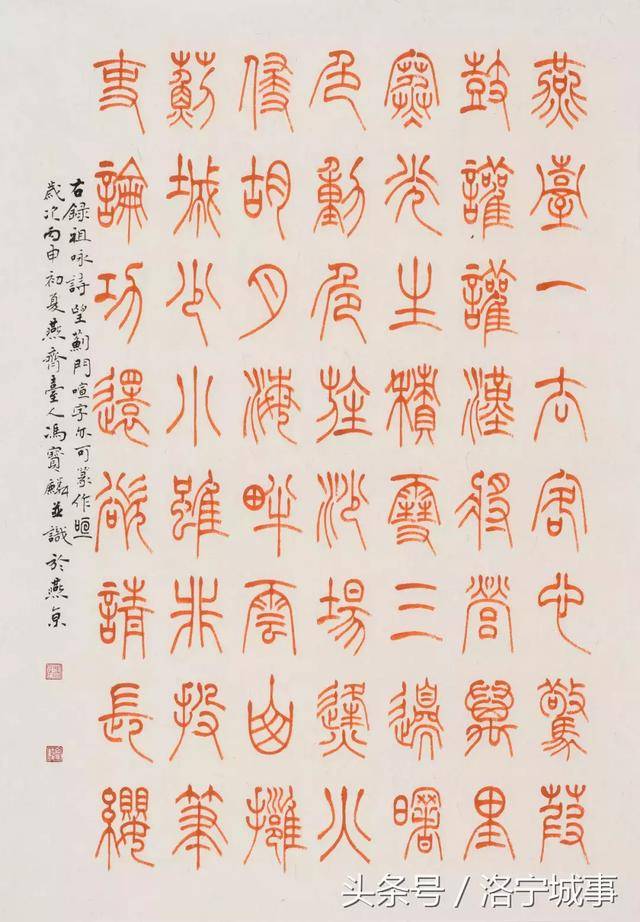 燕臺一去客心驚葭
鼓讙讙漢將營萬里
寒光生積雪三邊曙
色動危旌沙場烽火
侵胡月海畔雲山擁
薊城少小雖非投筆
吏論功還欲請長纓
右錄祖咏詩望薊門喧字亦可篆作
歲次丙申初夏燕齊臺人馮寶麟並識於燕京
头条号/洛宁城事